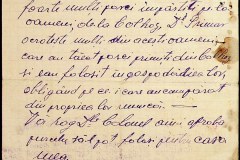 foarte multe porci împărțiți pe la
oameni, de la Colhoz. D-l Primar
ocrotește multe din acești oameni
care au tăiat porci primiți din Colhoz
și i-au folosit în gospodăria lor,
obligând pe cei cari au cumparat
din propria lor muncă. —
Vă rog D-le Colonel a-mi aproba
porcul să-l pot folosi pentru casa
mea.